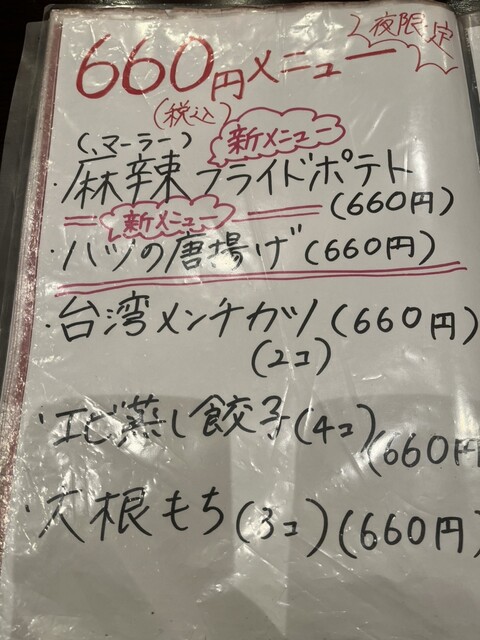 夜限定
660円メニュー
(税込)
新メニュー
(、マーラー)
・麻辣フライドポテト
(660円)
新メニュー
・ハツの唐揚げ(660円)
・台湾メンチカツ(660円)
(2コ)
・エビ蒸し餃子(4コ)(660円
・大根もち(3コ)(660円)